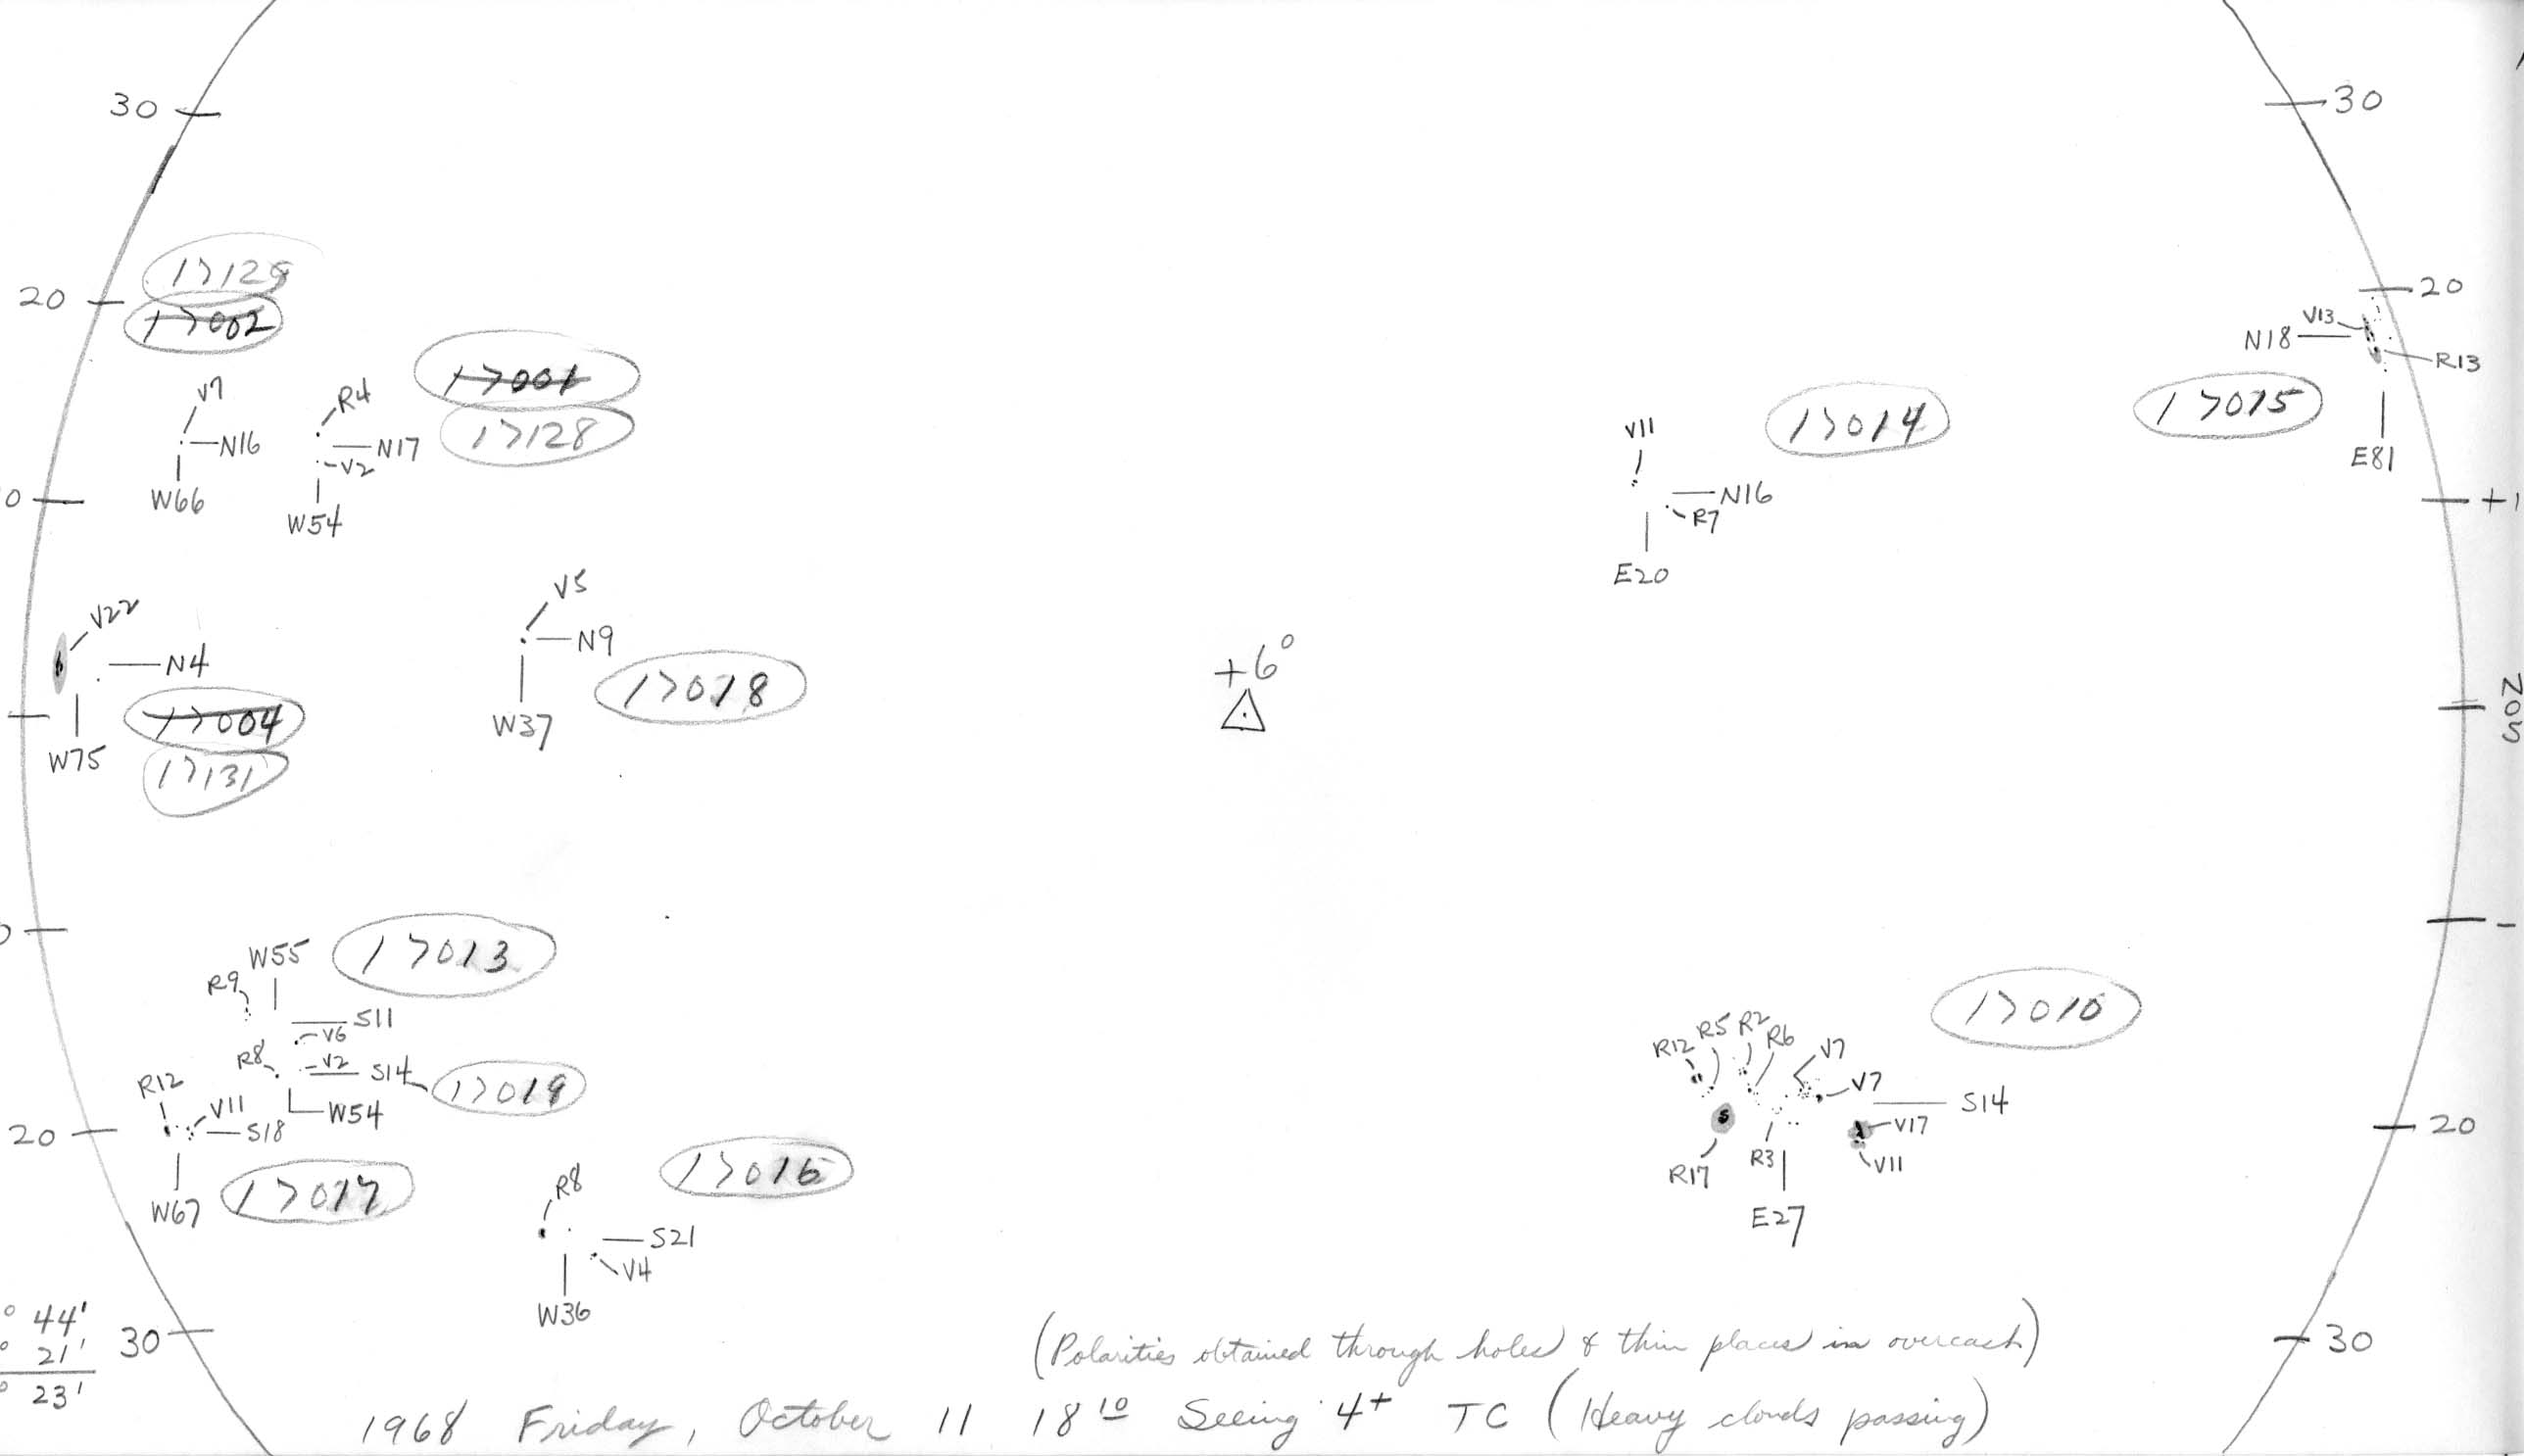 30
30
17129
20
20
17002
V13
N18
R13
17001
V7
R4
17015
N16
N17
17128
V11
17014
V2
E81
W66
N16
0
+1
W54
R7
E20
V5
V22
N9
+6°
N4
17018
N
0
S
17004
W37
W75
17131
W55
17013
R9
17010
S11
V6
R12
R5
R2
R6
V7
R8
V2
S14
17019
V7
R12
V11
W54
S14
20
S18
V17
20
R17
R3
V11
W67
17017
R8
17016
E27
S21
V4
W36
° 44'
° 21'
° 23'
30
(Polarities obtained through holes & thin places in overcast)
30
1968 Friday, October 11 18 10 Seeing 4+ TC (Heavy clouds passing)